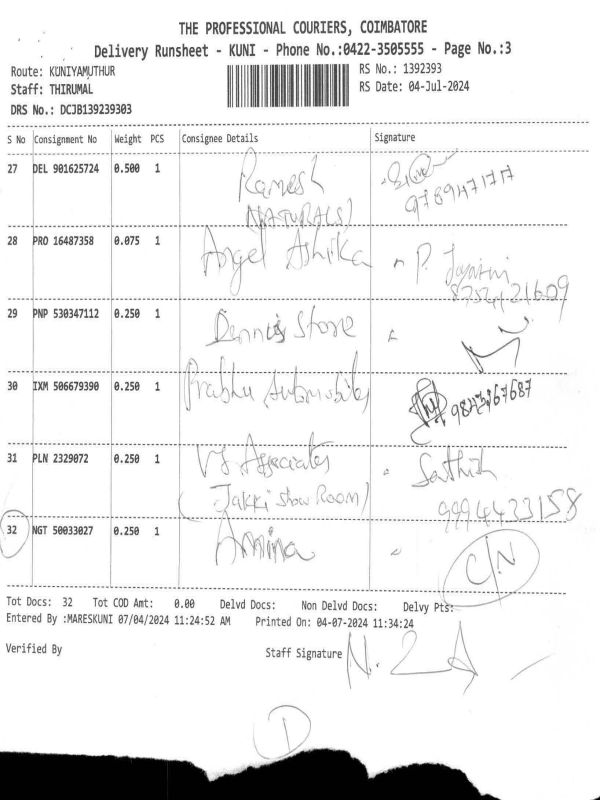 THE PROFESSIONAL COURIERS, COIMBATORE
Delivery Runsheet - KUNI - Phone No.:0422-3505555 - Page No.:3
Route: KUNIYAMUTHUR
RS No.: 1392393
Staff: THIRUMAL
RS Date: 04-Jul-2024
DRS No.: DCJB139239303
S No Consignment No Weight PCS Consignee Details Signature
27 DEL 901625724 0.500 1 Ramesh
(NATURALS)
9789471717
28 PRO 16487358 0.075 1 Angel Ashika P. Jayanthi
8754121609
29 PNP 530347112 0.250 1 Dennis Store
30 IXM 506679390 0.250 1 Prabhu Automobiles 9843367687
31 PLN 2329072 0.250 1 VJ Associates Sathish
(Jakki Show Room) 9994433158
32 NGT 50033027 0.250 1 Amina C/N
Tot Docs: 32 Tot COD Amt: 0.00 Delvd Docs: Non Delvd Docs: Delvy Pts:
Entered By :MARESKUNI 07/04/2024 11:24:52 AM Printed On: 04-07-2024 11:34:24
Verified By Staff Signature